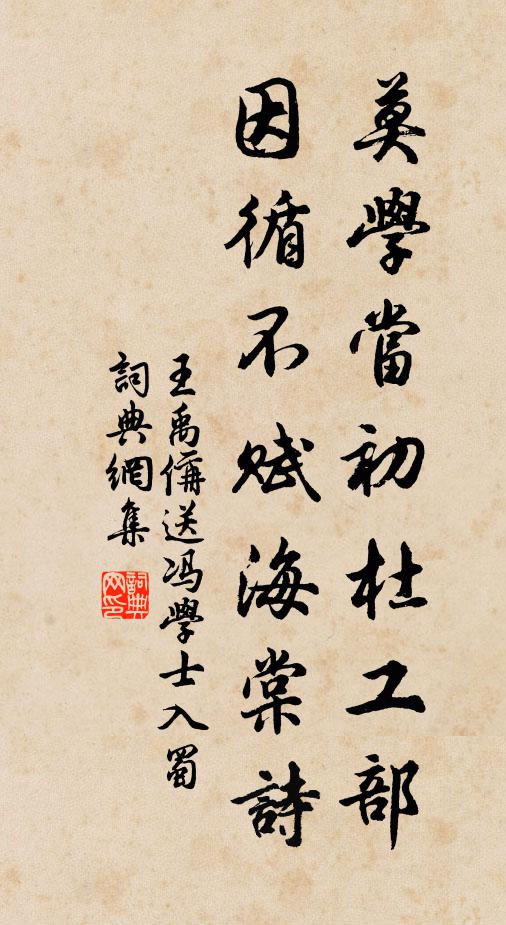 莫學當初杜工部
因循不賦海棠詩
王禹偁送冯學士入蜀
詞典網集
詞典网印